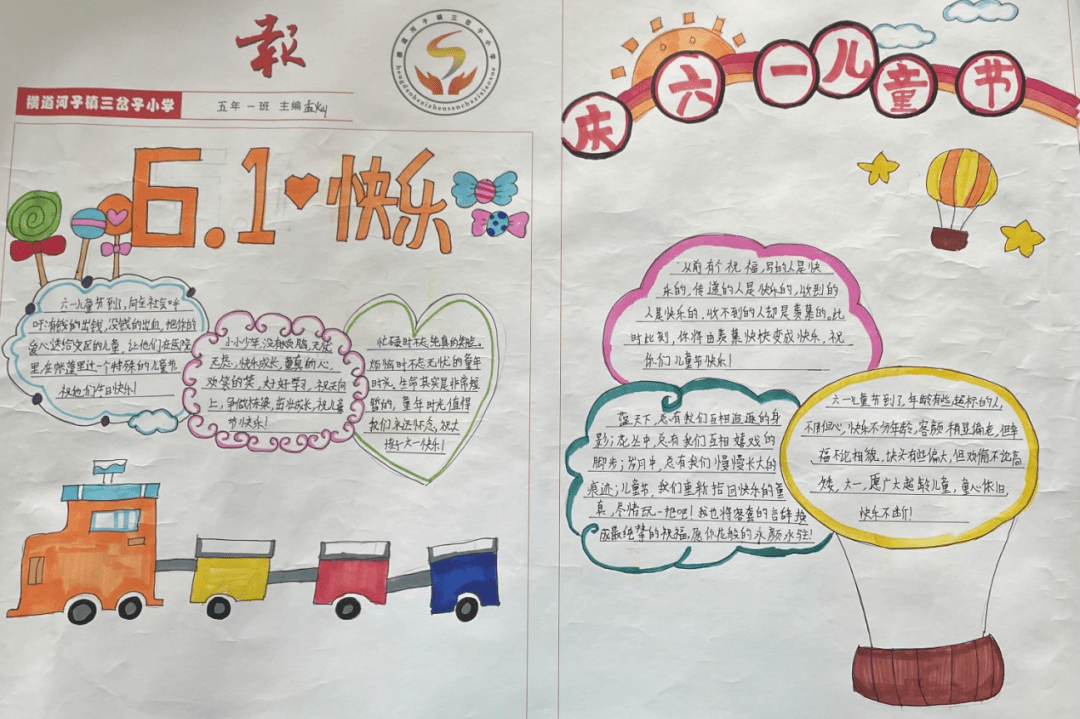 报
横道河子镇三岔子小学
五年一班 主编
横道河子镇三岔子小学
6.1快乐
六一儿童节到了,向全社会呼
吁:有钱的出钱,没钱的出血,把你的
爱心送给灾区的儿童,让他们在医院
里,在帐篷里过一个特殊的儿童节
祝他们节日快乐!
小小少年,没有烦恼,无忧
无虑,快乐成长,童真的心,
欢笑的笑,好好学习,天天向
上,争做栋梁,茁壮成长,祝儿童
节快乐!
忙碌时不忘纯真的笑脸,
烦恼时不忘无忧的童年
时光,生命其实是非常短
暂的,童年时光值得
我们永远怀念,祝大
孩子六一快乐!
庆六一儿童节
从前有个祝福,写的人是快
乐的,传递的人是快乐的,收到的
人是快乐的,收不到的人却是羡慕的。此
时此刻,你将由羡慕快快变成快乐,祝
你们儿童节快乐!
蓝天下,总有我们互相追逐的身
影;花丛中,总有我们互相嬉戏的
脚步;岁月中,总有我们慢慢长大的
痕迹;儿童节,我们重新拾回快乐的童
真,尽情玩一把吧!我也将
成最绝挚的祝福,愿你花般的永颜永驻!
六一儿童节到了,年龄有些超标的人,
不用担心,快乐不分年龄,容颜稍显偏老,但幸
福不论相貌,快六有些偏大,但欢愉不论高
矮,六一,愿广大超龄儿童,童心依旧,
快乐不断!